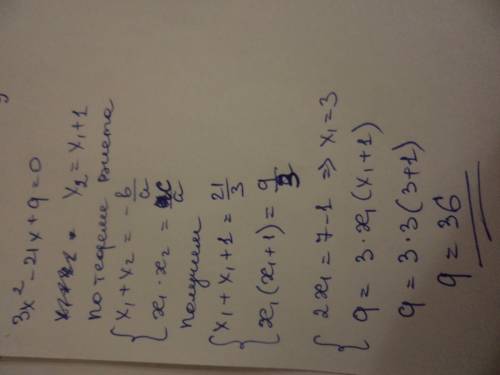 3x² - 21x + q = 0
x₂ = x₁ + 1
по теореме Виета
{ x₁ + x₂ = -b/a
x₁ · x₂ = c/a
получаем
{ x₁ + x₁ + 1 = 21/3
x₁(x₁+1) = q/3
{ 2x₁ = 7 - 1 ⇒ x₁ = 3
q = 3 · x₁(x₁+1)
q = 3·3(3+1)
q = 36